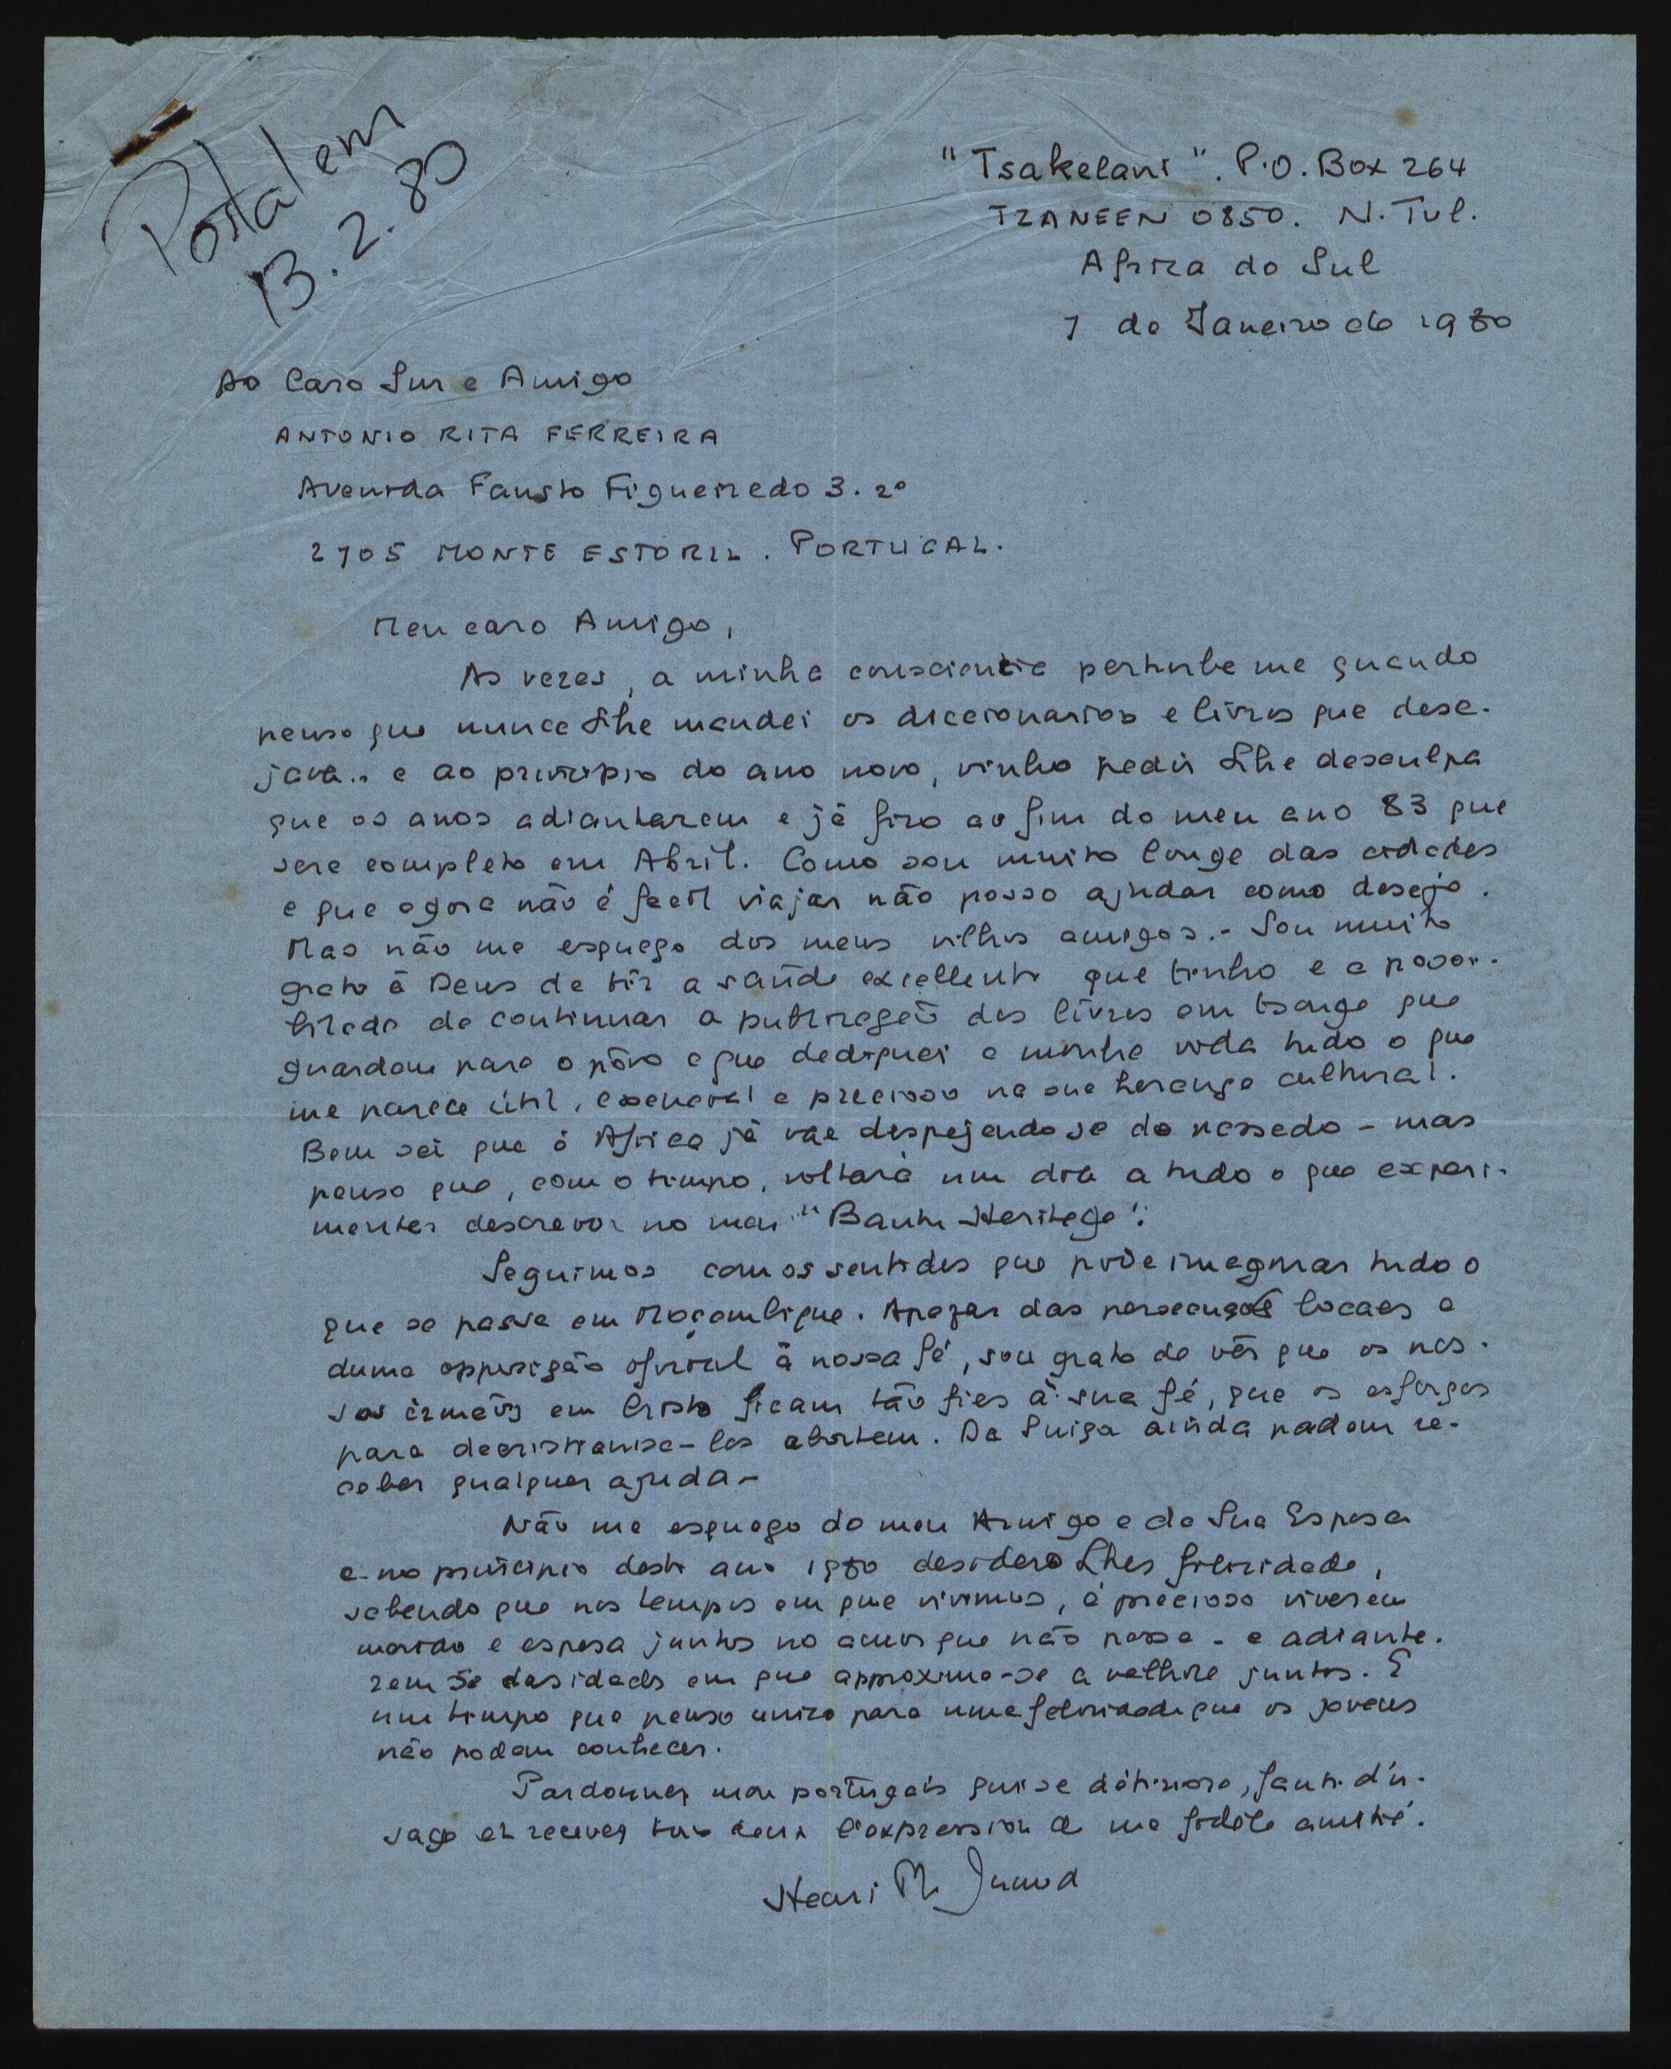 Postal em
13.2.80
"Tsakelani". P.O. Box 264
TZANEEN 0850. N. Tvl.
Africa do Sul
7 de Janeiro de 1980
Ao Caro Snr e Amigo
ANTONIO RITA FERREIRA
Avenida Fausto Figueiredo 3. 2º
2705 MONTE ESTORIL. PORTUGAL.
Meu caro Amigo,
As vezes, a minha consciencia perturbe me quando
penso que nunca Lhe mandei os diccionarios e livros que dese-
java.. e ao principio do ano novo, vinho pedir Lhe desculpa
que os anos adiantarem e já firo ao fim do meu ano 83 que
sera completo em Abril. Como sou muito longe das cidades
e que agora não é facil viajar não posso ajudar como desejo.
Mas não me esqueço dos meus velhos amigos.- Sou muito
grato à Deus de têr a saúde excellente que tenho e a possi-
bilidade de continuar a publicação dos livros em tsonga que
guardam para o pôvo a que dediquei a minha vida tudo o que
me parece útil, essencial e precioso na sua herança cultural.
Bem sei que á Africa já vae despejando se do passado - mas
penso que, com o tempo, voltará um dia a tudo o que experi-
mentei descrever no meu "Bantu Heritage".
Seguimos com os sentidos que pode imaginar tudo o
que se passa em Moçambique. Apezar das persecuções locaes e
duma opposição oficial à nossa fé, sou grato de vêr que os nos-
sos irmãos em Cristo ficam tão fies à sua fé, que os esforços
para decristianise-los abortem. Da Suiça ainda podem re-
ceber qualquer ajuda-
Não me esqueço do meu Amigo e da Sua Esposa
e no principio deste ano 1980 desidero Lhes felicidade,
sabendo que nos tempos em que vivimos, é precioso viverem
marido e esposa juntos no amor que não passa - e adiante-
rem se das idades em que approxima-se a velhice juntos. É
um tempo que penso unico para uma felicidade que os jovens
não podem conhecer.
Pardonnez mon portugais qui se détériore, faute d'u-
sage et recevez tous deux l'expression de ma fidèle amitié.
Henri Ph Junod